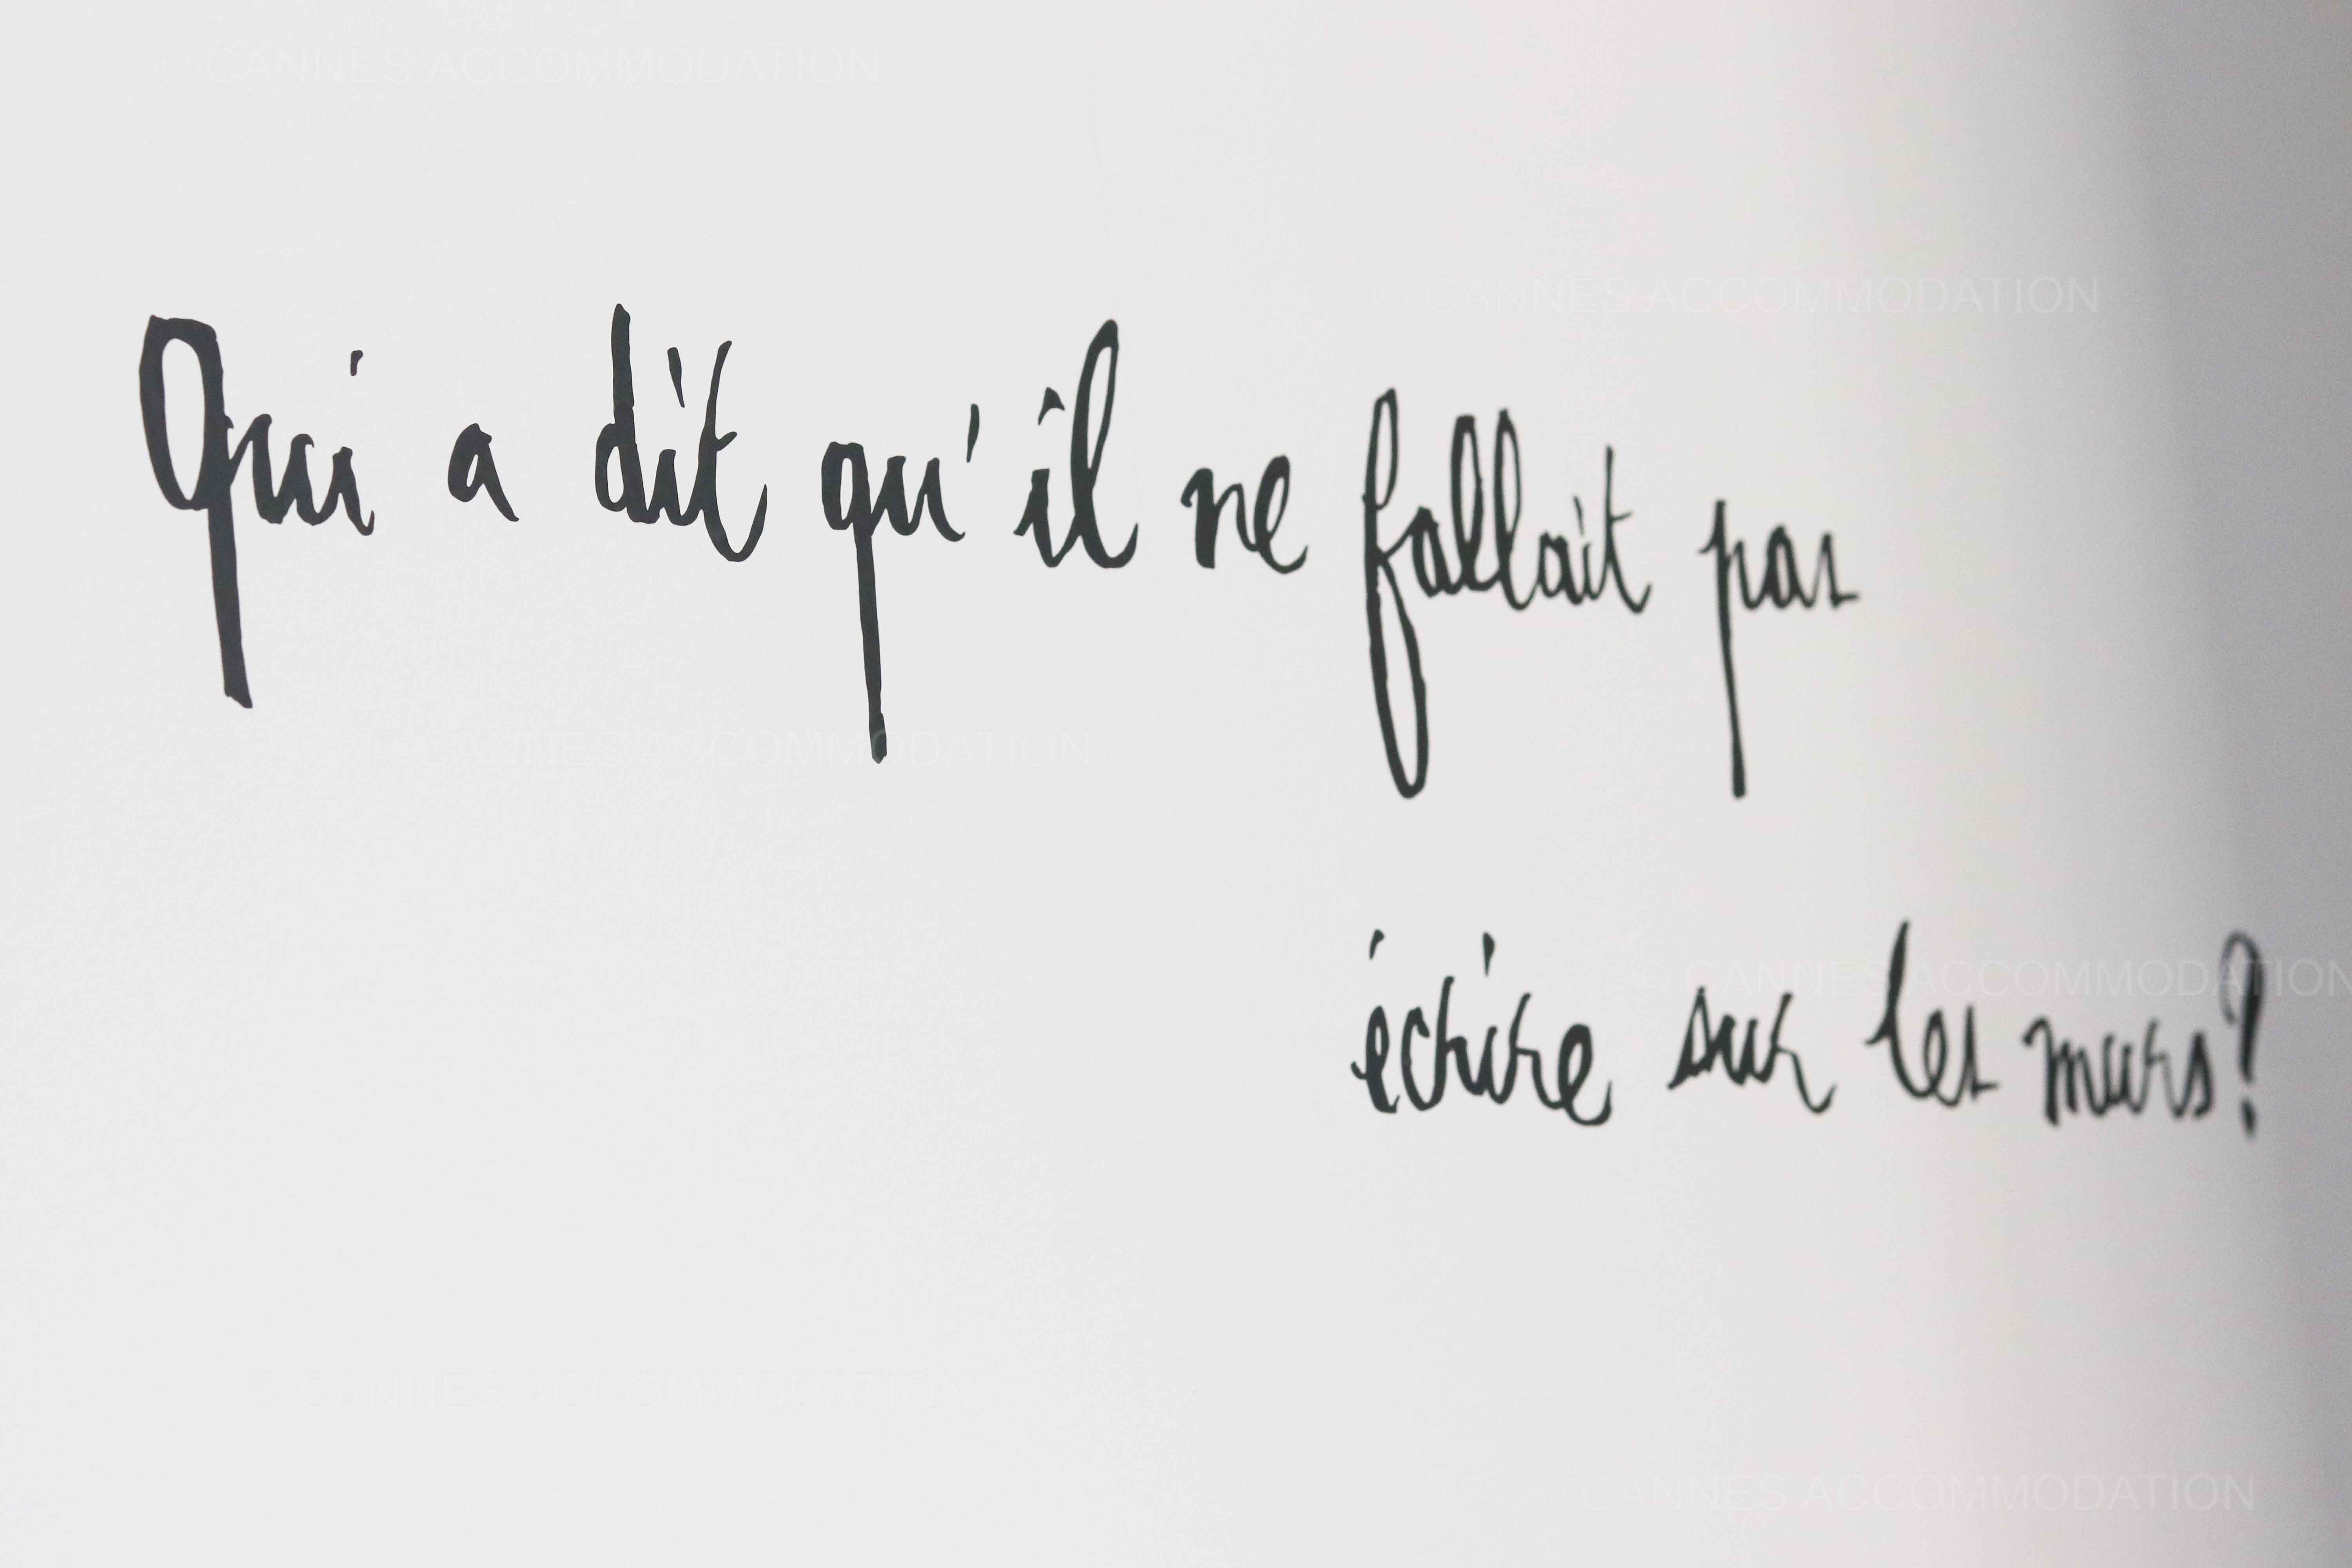 © CANNES ACCOMMODATION
© CANNES ACCOMMODATION
Qui a dit qu'il ne fallait pas
© CANNES ACCOMMODATION
écrire sur les murs?
© CANNES ACCOMMODATION
© CANNES ACCOMMODATION
© CANNES ACCOMMODATION